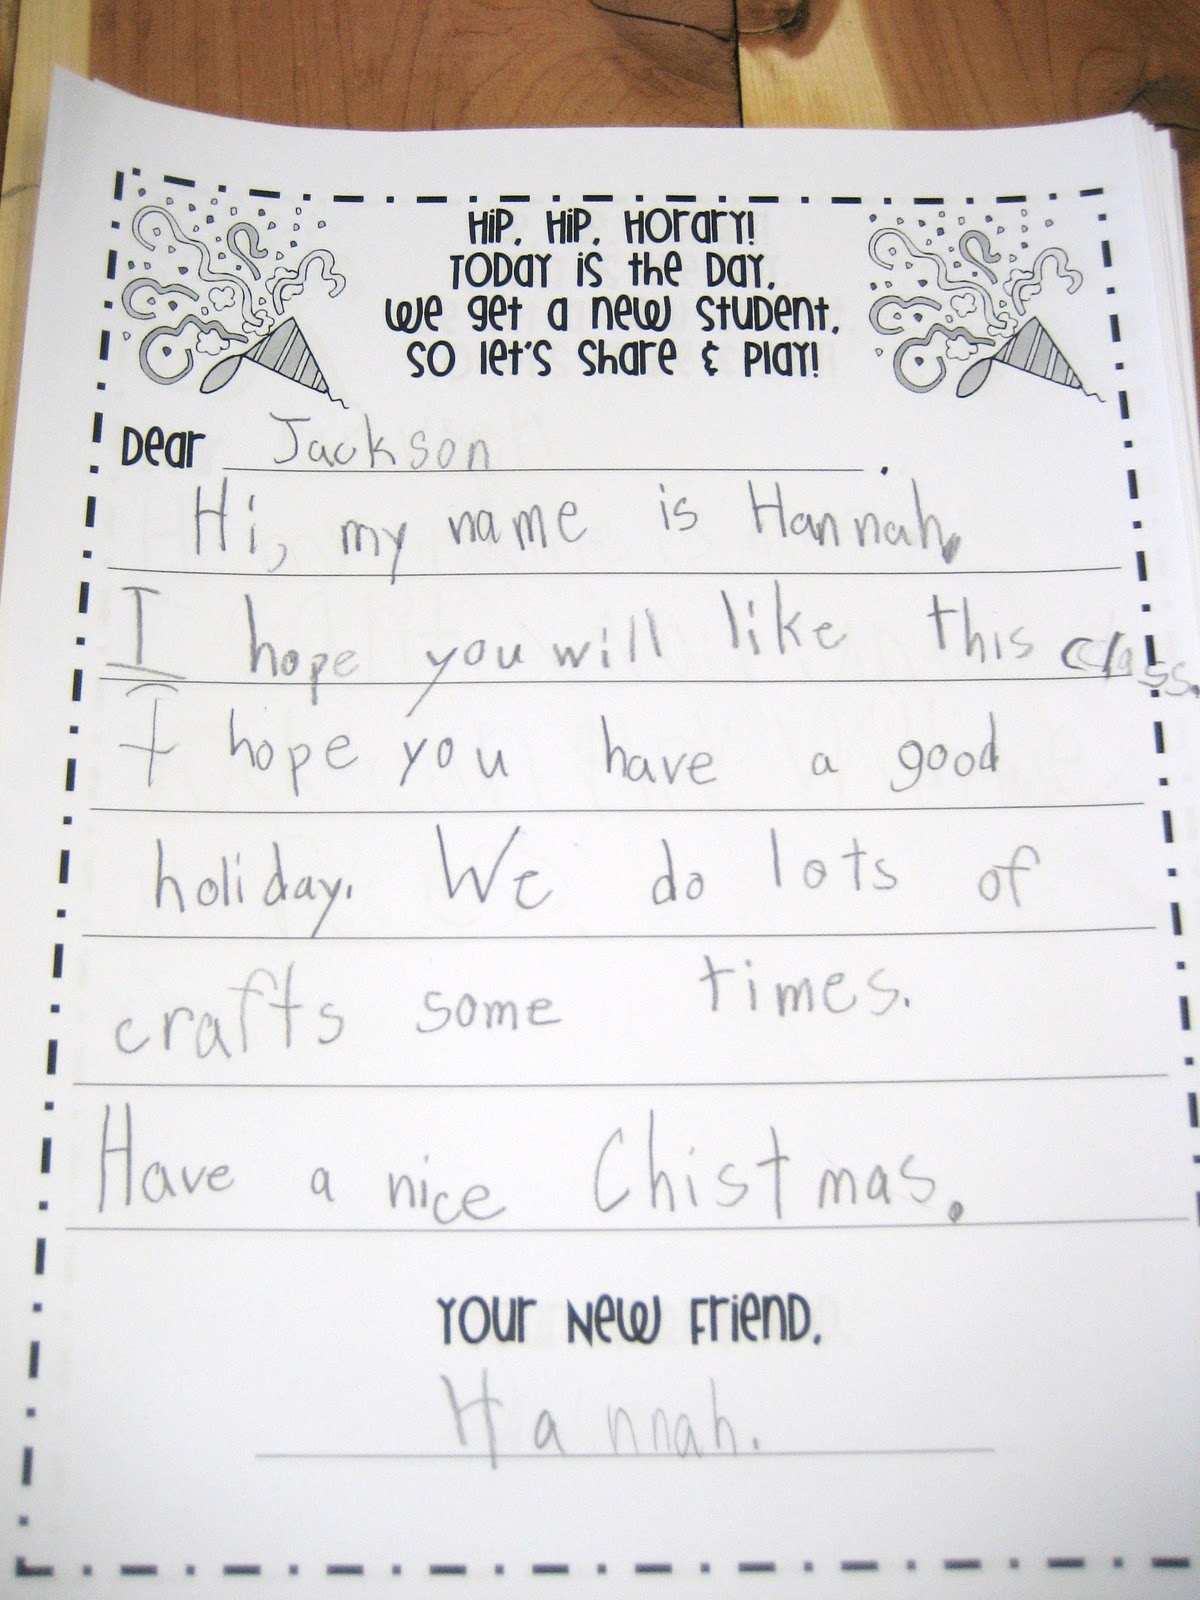 Hip, Hip, Horary!
Today is the day,
We get a new student,
So let's share & play!
Dear Jackson,
Hi, my name is Hannah.
I hope you will like this class.
I hope you have a good
holiday. We do lots of
crafts some times.
Have a nice Chistmas.
Your New Friend,
Hannah.